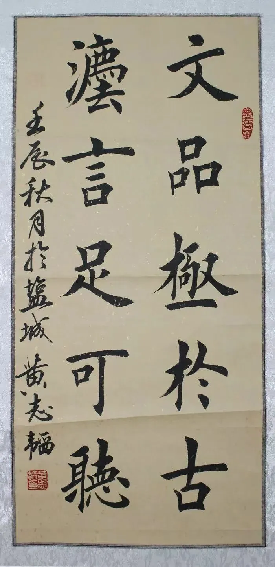 文品極於古
灋言足可聽
壬辰秋月於鹽城 黄志